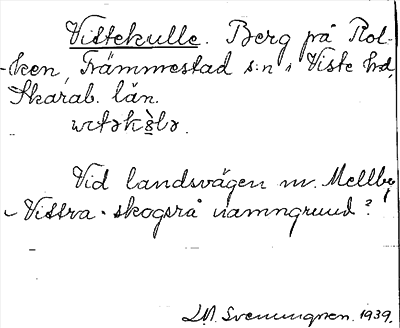 Vittekulle. Berg på Rol-
ken, Främmestad s:n i Viste hd,
Skarab. län.
Vid landsvägen nv. Mellby
Vittra - skogsrå namngrund?
Svenungsen. 1939.